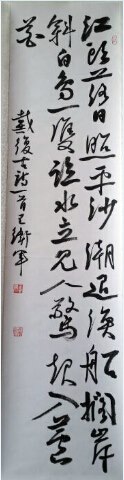 江頭落日照平沙潮退漁船擱岸
斜白鳥一雙臨水立見人驚起入蘆
花
戴復古詩一首 衛軍